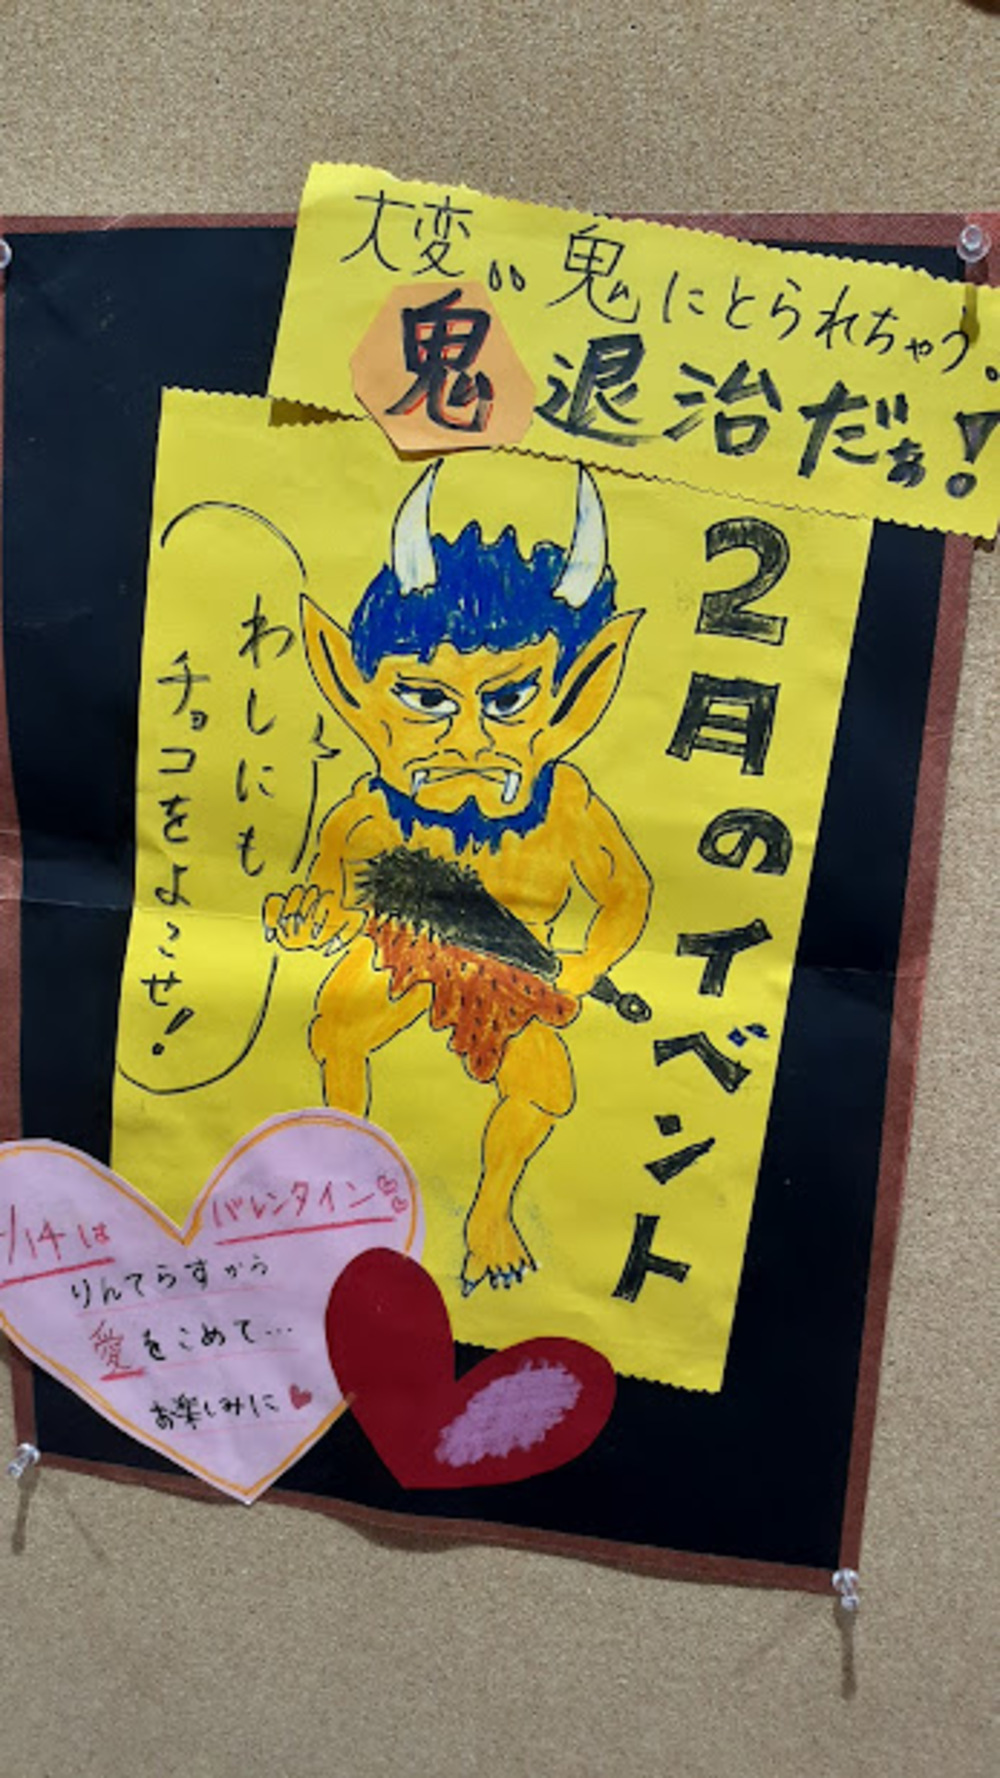 大変〃鬼にとられちゃう。
鬼退治だぁ!
2月のイベント
わしにも
チョコをよこせ!
/14は バレンタイン
りんてらすから
愛をこめて…
お楽しみに